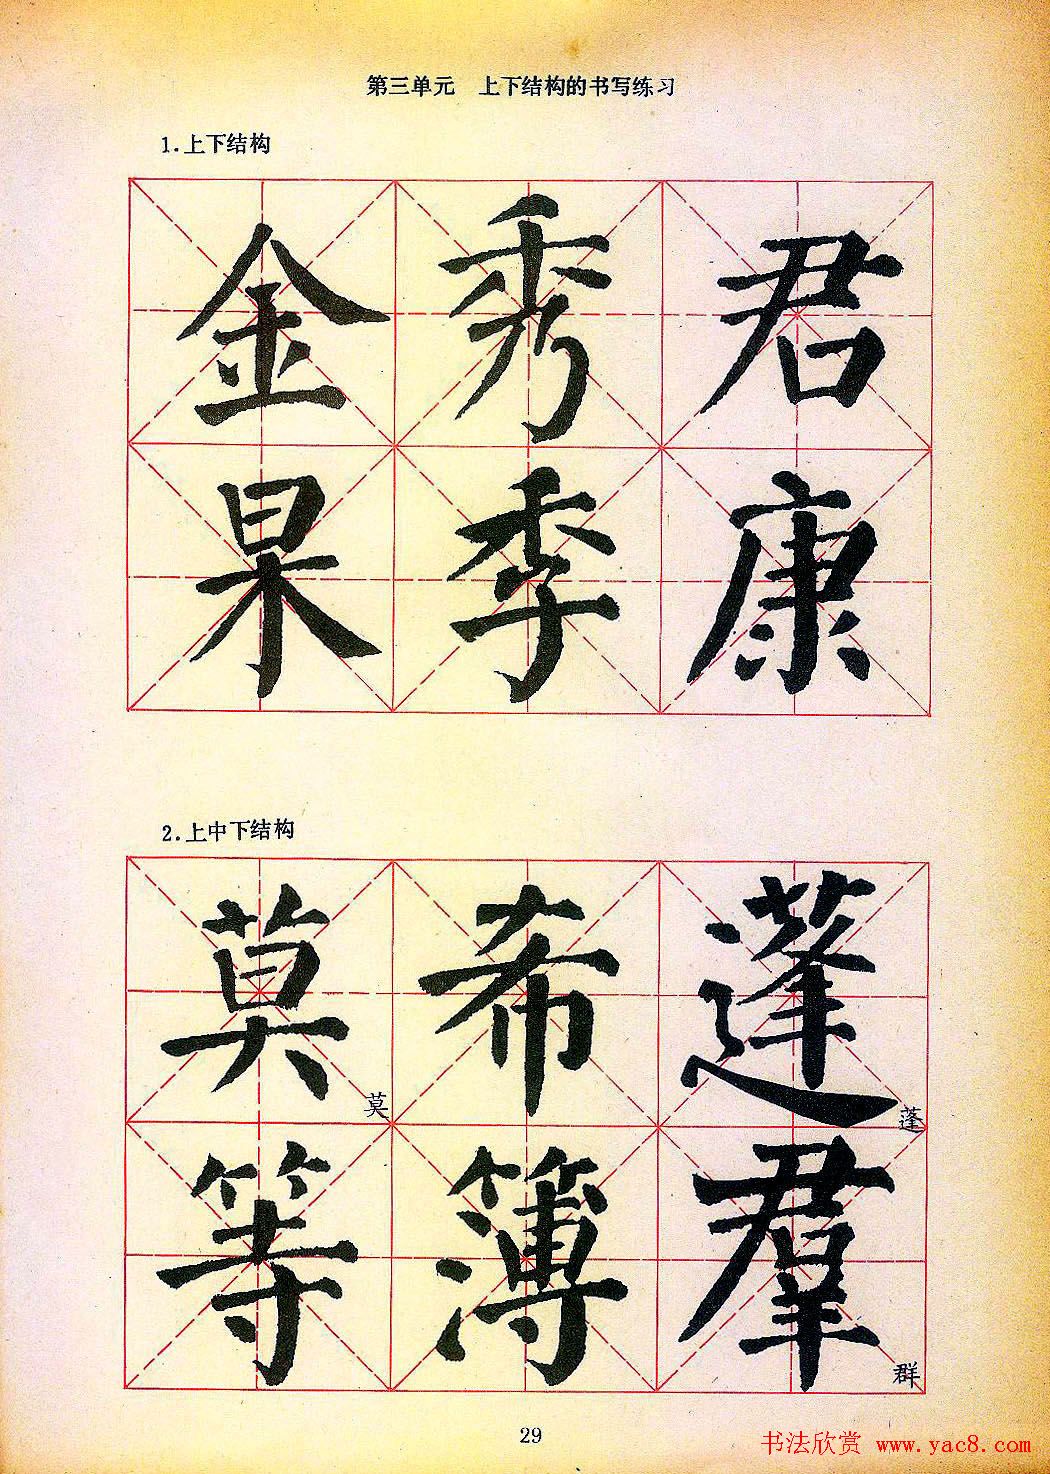 第三单元 上下结构的书写练习
1.上下结构
金秀君
果季康
2.上中下结构
莫希蓬
莫 蓬
等簿羣
群
29
书法欣赏 www.yac8.com